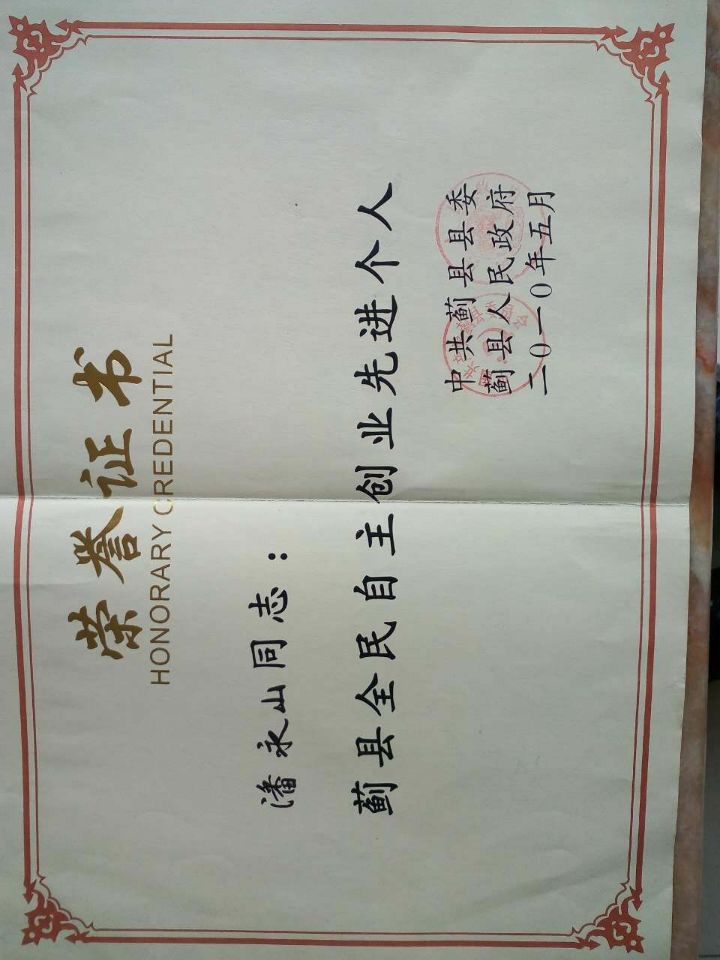 荣誉证书
HONORARY CREDENTIAL
潘永山同志：
蓟县全民自主创业先进个人
中共蓟县县委
蓟县人民政府
二〇一〇年五月